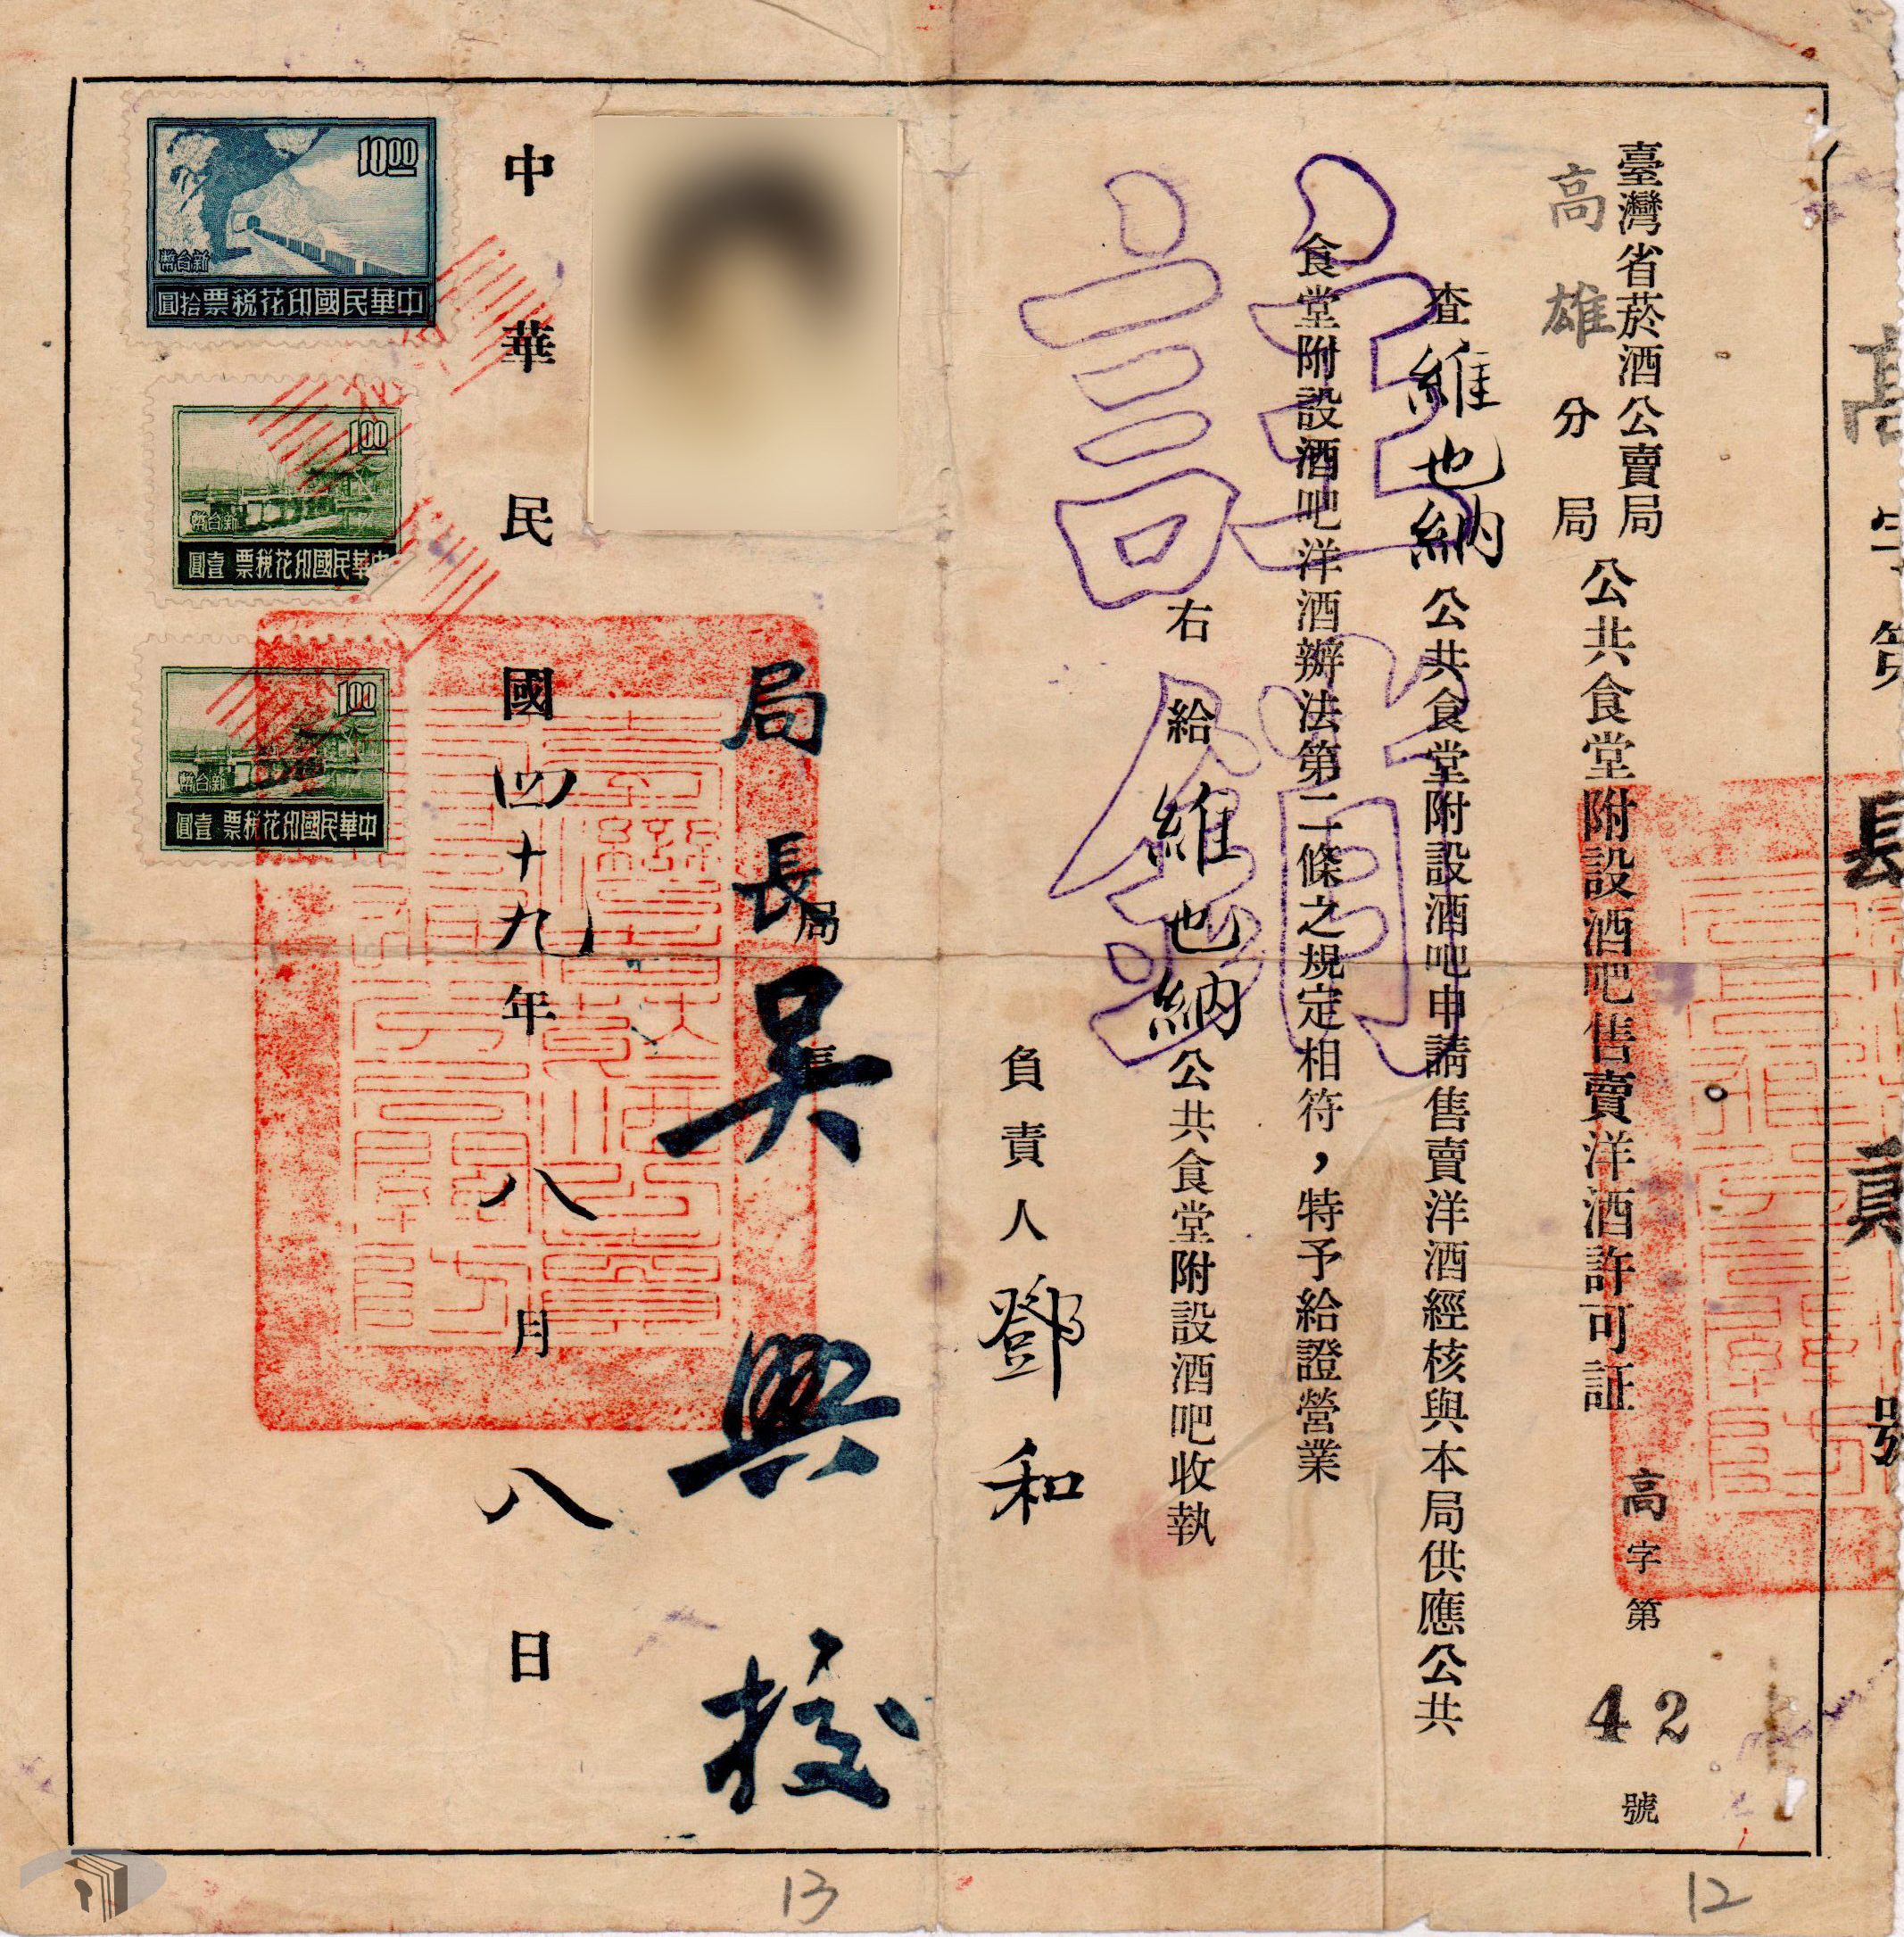 高字第 肆貳號
臺灣省菸酒公賣局
高雄分局
公共食堂附設酒吧售賣洋酒許可証
高字第42號
查維也納公共食堂附設酒吧申請售賣洋酒經核與本局供應公共
食堂附設酒吧洋酒辦法第二條之規定相符，特予給證營業
註銷
右給維也納公共食堂附設酒吧收執
負責人鄧和
局長
局長吳興拔
中華民國四十九年八月八日
10.00
新台幣
中華民國印花稅票拾圓
1.00
新台幣
中華民國印花稅票壹圓
1.00
新台幣
中華民國印花稅票壹圓
13
12